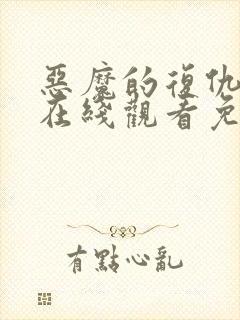 惡魔的復仇
在綫觀看免
有點心亂